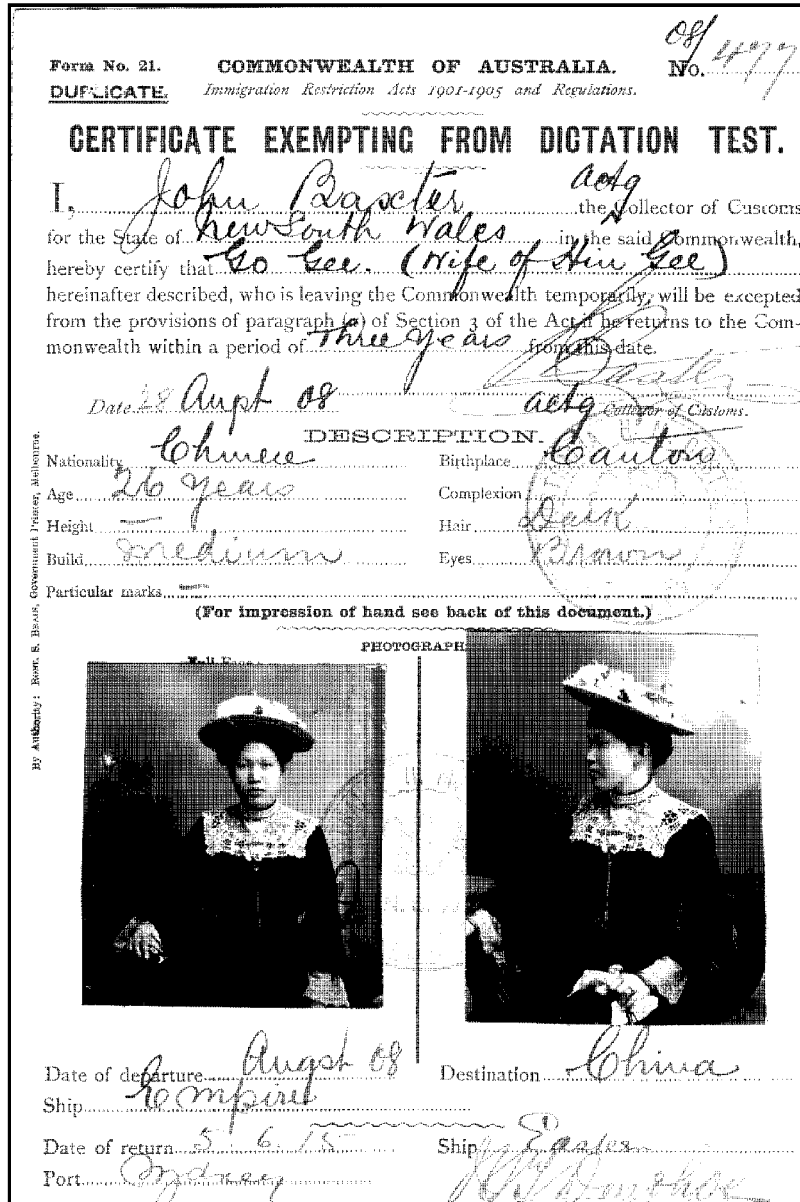 08/
Form No. 21. COMMONWEALTH OF AUSTRALIA. No. 477
DUPLICATE. Immigration Restriction Acts 1901-1905 and Regulations.
CERTIFICATE EXEMPTING FROM DICTATION TEST.
I, John Baxter actg the Collector of Customs
for the State of New South Wales in the said Commonwealth,
hereby certify that Go Gee. (Wife of Hin Gee)
hereinafter described, who is leaving the Commonwealth temporarily, will be excepted
from the provisions of paragraph (a) of Section 3 of the Act if he returns to the Com-
monwealth within a period of Three Years from this date.
Date 28 Augst 08 actg Collector of Customs.
DESCRIPTION.
Nationality Chinese Birthplace Canton
Age 26 Years Complexion
Height — Hair Dark
Build Medium Eyes Brown
Particular marks
(For impression of hand see back of this document.)
PHOTOGRAPH
Full Face
Date of departure Augst 08 Destination China
Ship Empire
Date of return 5.6.15 Ship Eastern
Port Sydney
By Authority: ROBT. S. BRAIN, Government Printer, Melbourne.